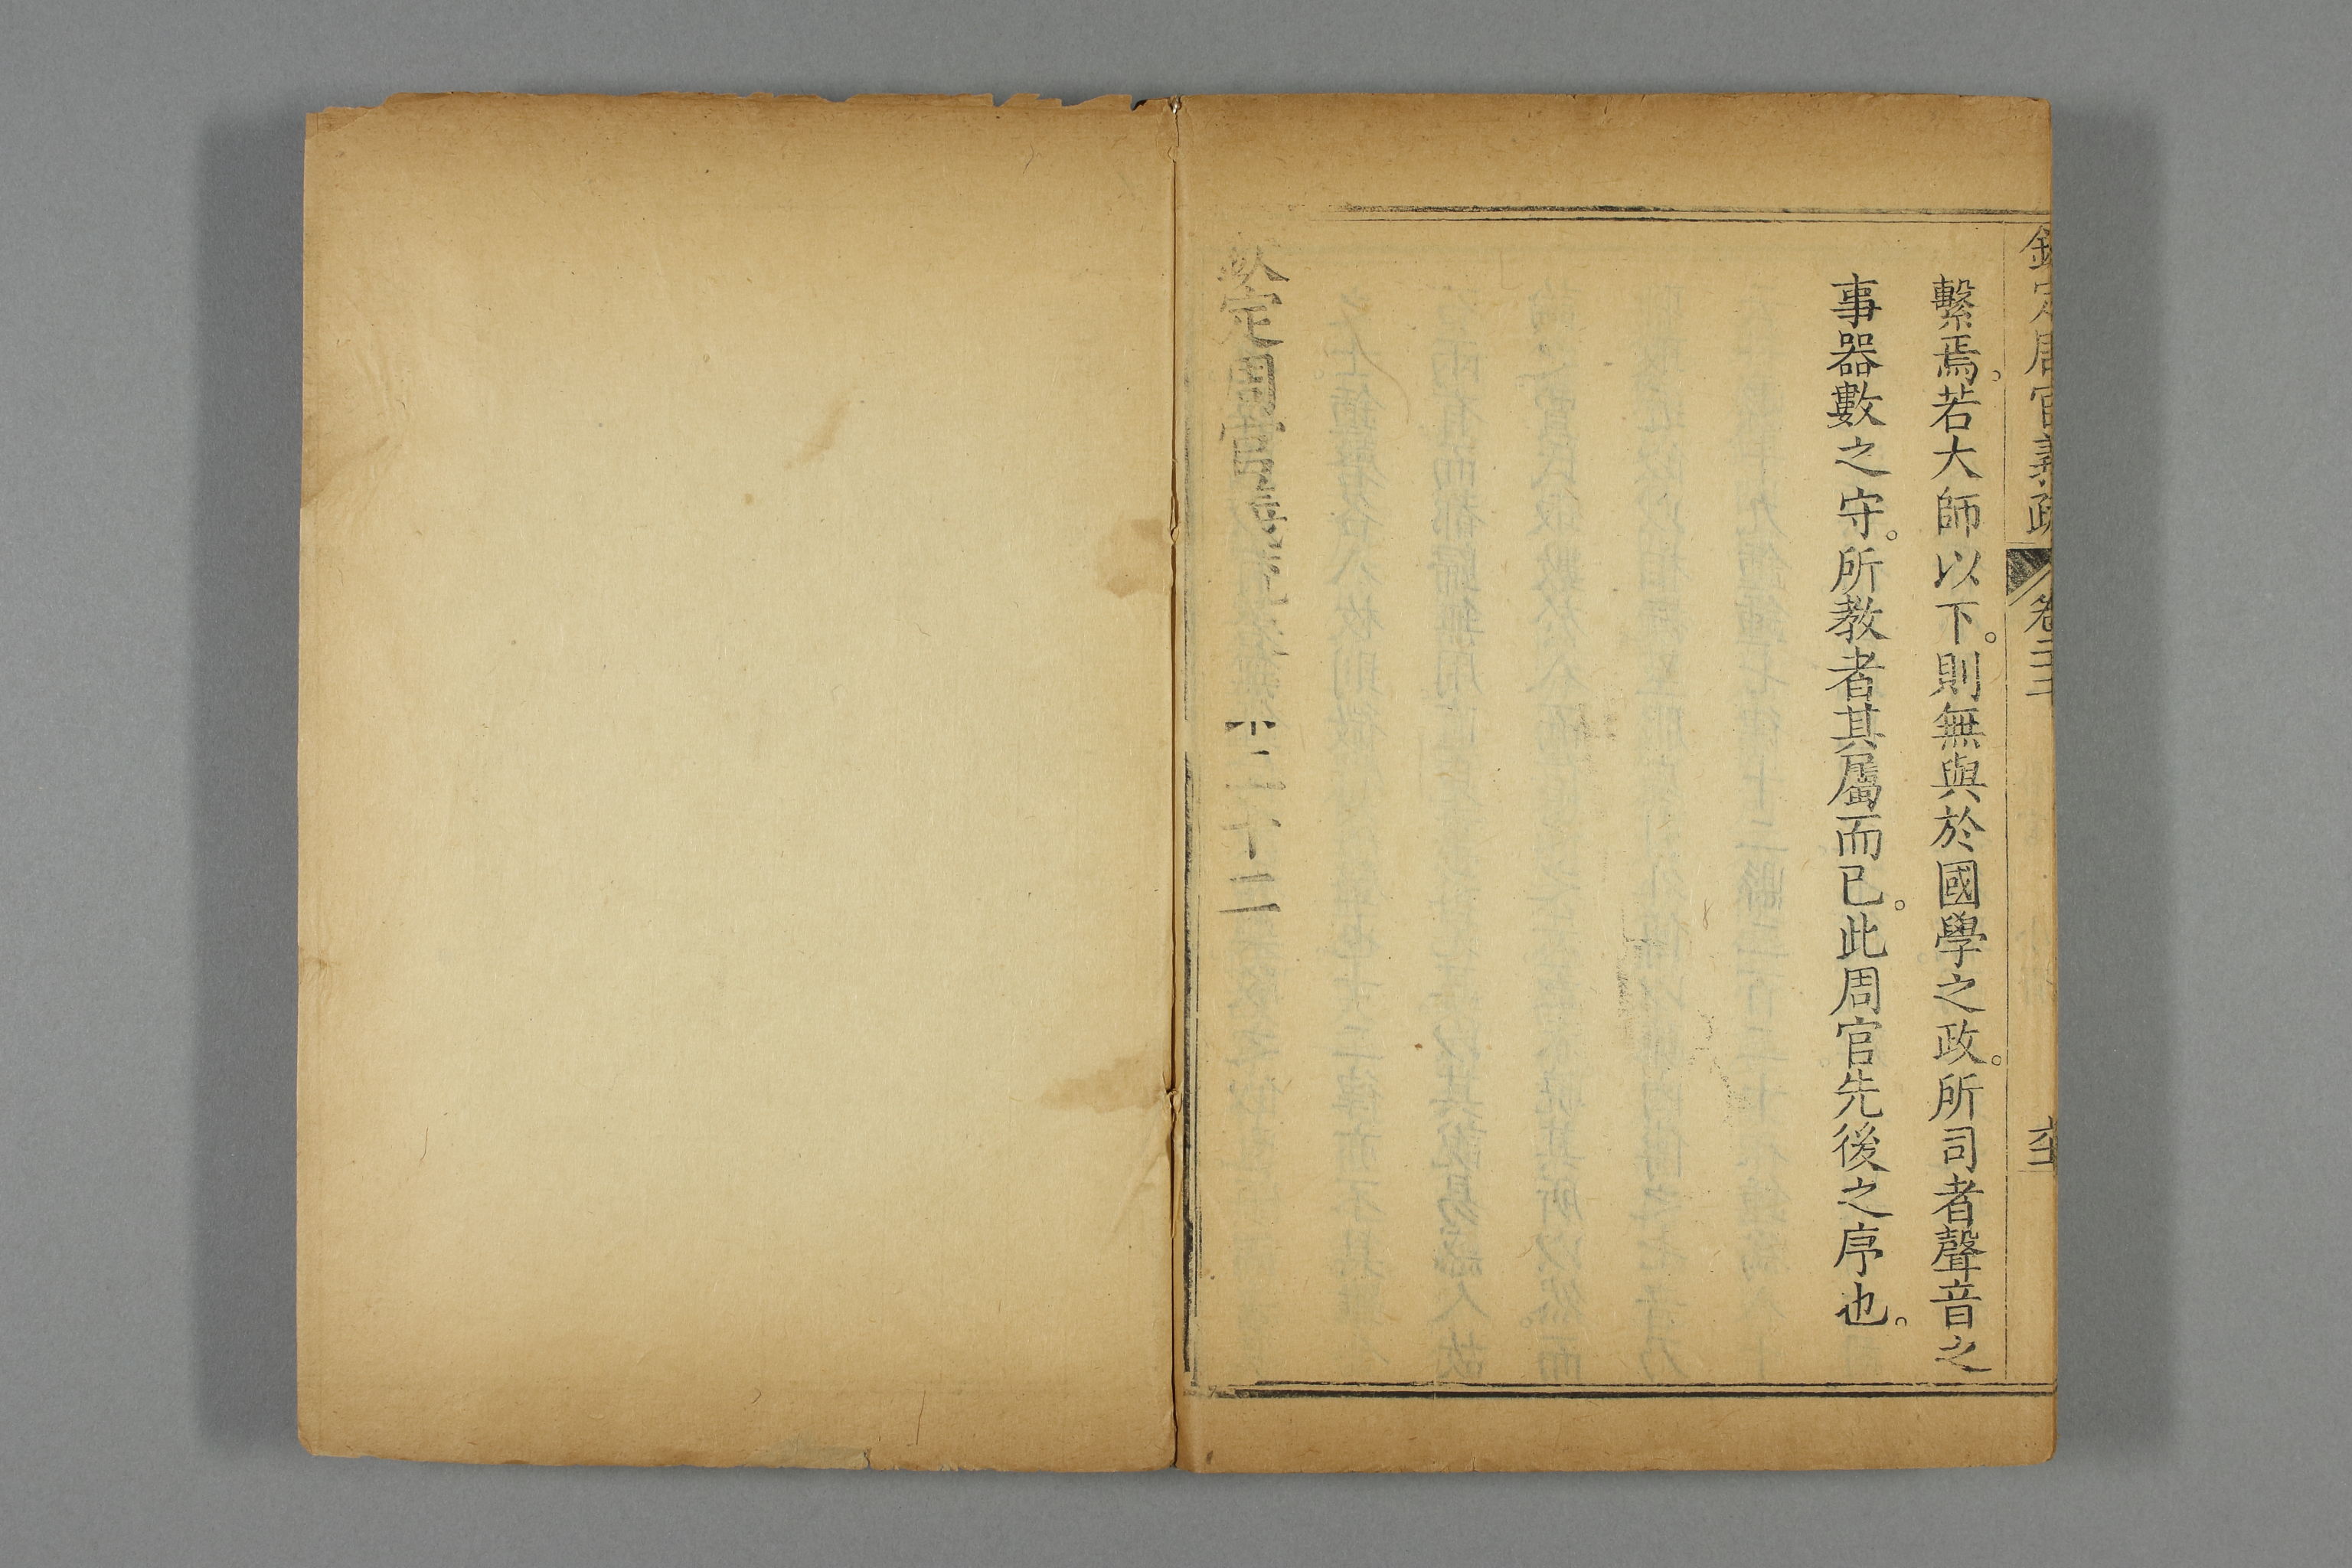 欽定周官義疏 卷二十二
繫焉。若大師以下。則無與於國學之政。所司者聲音之
事器數之守。所教者其屬而已。此周官先後之序也。
欽定周官義疏卷二十二